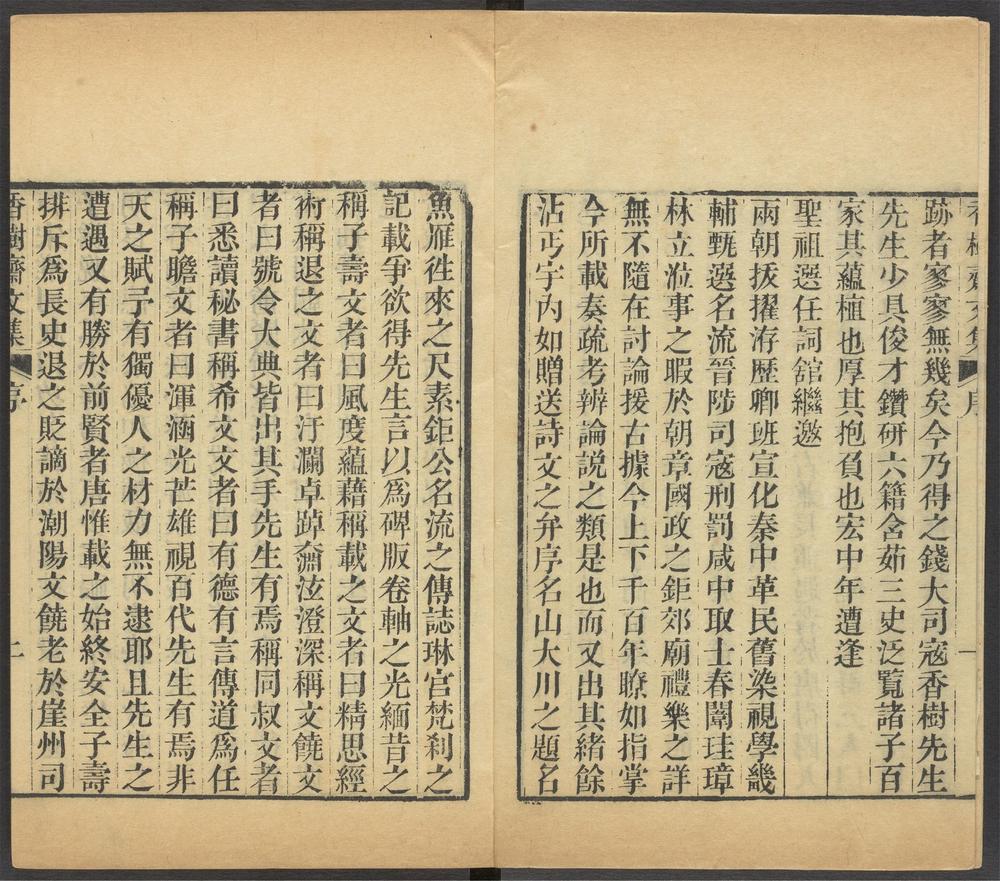 香樹齋文集 序
跡者寥寥無幾矣今乃得之錢大司寇香樹先生
先生少具俊才鑽研六籍含茹三史泛覧諸子百
家其蘊植也厚其抱負也宏中年遭逢
聖祖選任詞舘繼邀
兩朝拔擢洊歷卿班宣化秦中革民舊染視學畿
輔甄選名流晉陟司寇刑罰咸中取士春闈珪璋
林立涖事之暇於朝章國政之鉅郊廟禮樂之詳
無不隨在討論援古據今上下千百年瞭如指掌
今所載奏疏考辨論説之類是也而又出其緒餘
沾丐宇內如贈送詩文之弁序名山大川之題名
魚雁徃來之尺素鉅公名流之傳誌琳宫梵刹之
記載爭欲得先生言以爲碑版卷軸之光緬昔之
稱子壽文者曰風度蘊藉稱載之文者曰精思經
術稱退之文者曰汙瀾卓踔奫泫澄深稱文饒文
者曰號令大典皆出其手先生有焉稱同叔文者
曰悉讀秘書稱希文文者曰有德有言傳道爲任
稱子瞻文者曰渾涵光芒雄視百代先生有焉非
天之賦予有獨優人之材力無不逮耶且先生之
遭遇又有勝於前賢者唐惟載之始終安全子壽
排斥爲長史退之貶謫於潮陽文饒老於崖州司
香樹齋文集 序 二